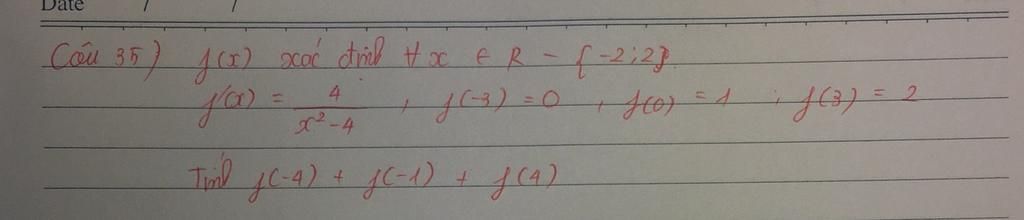 Date / /
Câu 35) f(x) xác định ∀ x ∈ R - {-2;2}.
f'(x) = 4/(x²-4) , f(-3) = 0 , f(0) = 1 ; f(3) = 2
Tính f(-4) + f(-1) + f(4)